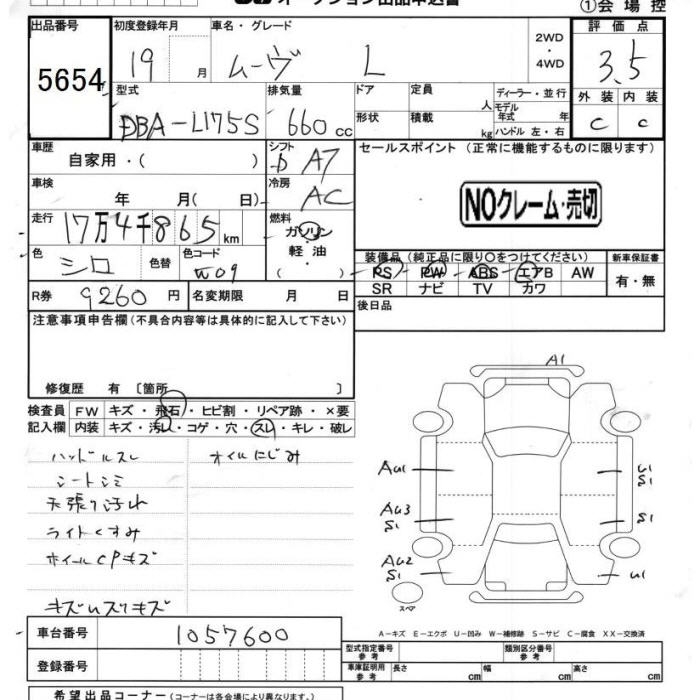 ①会場控
出品番号 初度登録年月 車名・グレード 2WD・4WD 評価点
5654 19 月 ムーヴ L 3.5
型式 排気量 ドア 定員 人 ディーラー・並行 外装 内装
DBA-L175S 660cc 形状 積載 kg モデル年式 年 ハンドル 左・右 C C
車歴 シフト セールスポイント (正常に機能するものに限ります)
自家用・( ) A7
車検 冷房
年 月( 日) AC
NOクレーム・売切
走行 燃料
17万4千865km ガソリン・軽油 ( )
色 色替 色コード 装備品 (純正品に限り○をつけてください) 新車保証書
シロ W09 PS PW ABS エアB AW 有・無
SR ナビ TV カワ
R券 9260円 名変期限 月 日 後日品
注意事項申告欄 (不具合内容等は具体的に記入して下さい)
修復歴 有 〔箇所 〕
検査員 FW キズ・飛石・ヒビ割・リペア跡・×要
記入欄 内装 キズ・汚レ・コゲ・穴・スレ・キレ・破レ
ハンドルスレ オイルにじみ
シートシミ
天張り汚れ
ライトくすみ
ホイールCPキズ
A1
AU1
U1
S1
AU3
S1
S1
AU2
S1
U1
スペア
A-キズ E-エクボ U-凹み W-補修跡 S-サビ C-腐食 XX-交換済
車台番号 1057600
登録番号
型式指定番号 参考 類別区分番号 参考
車庫証明用 参考 長さ cm 幅 cm 高さ cm
希望出品コーナー (コーナーは各会場により異なります)